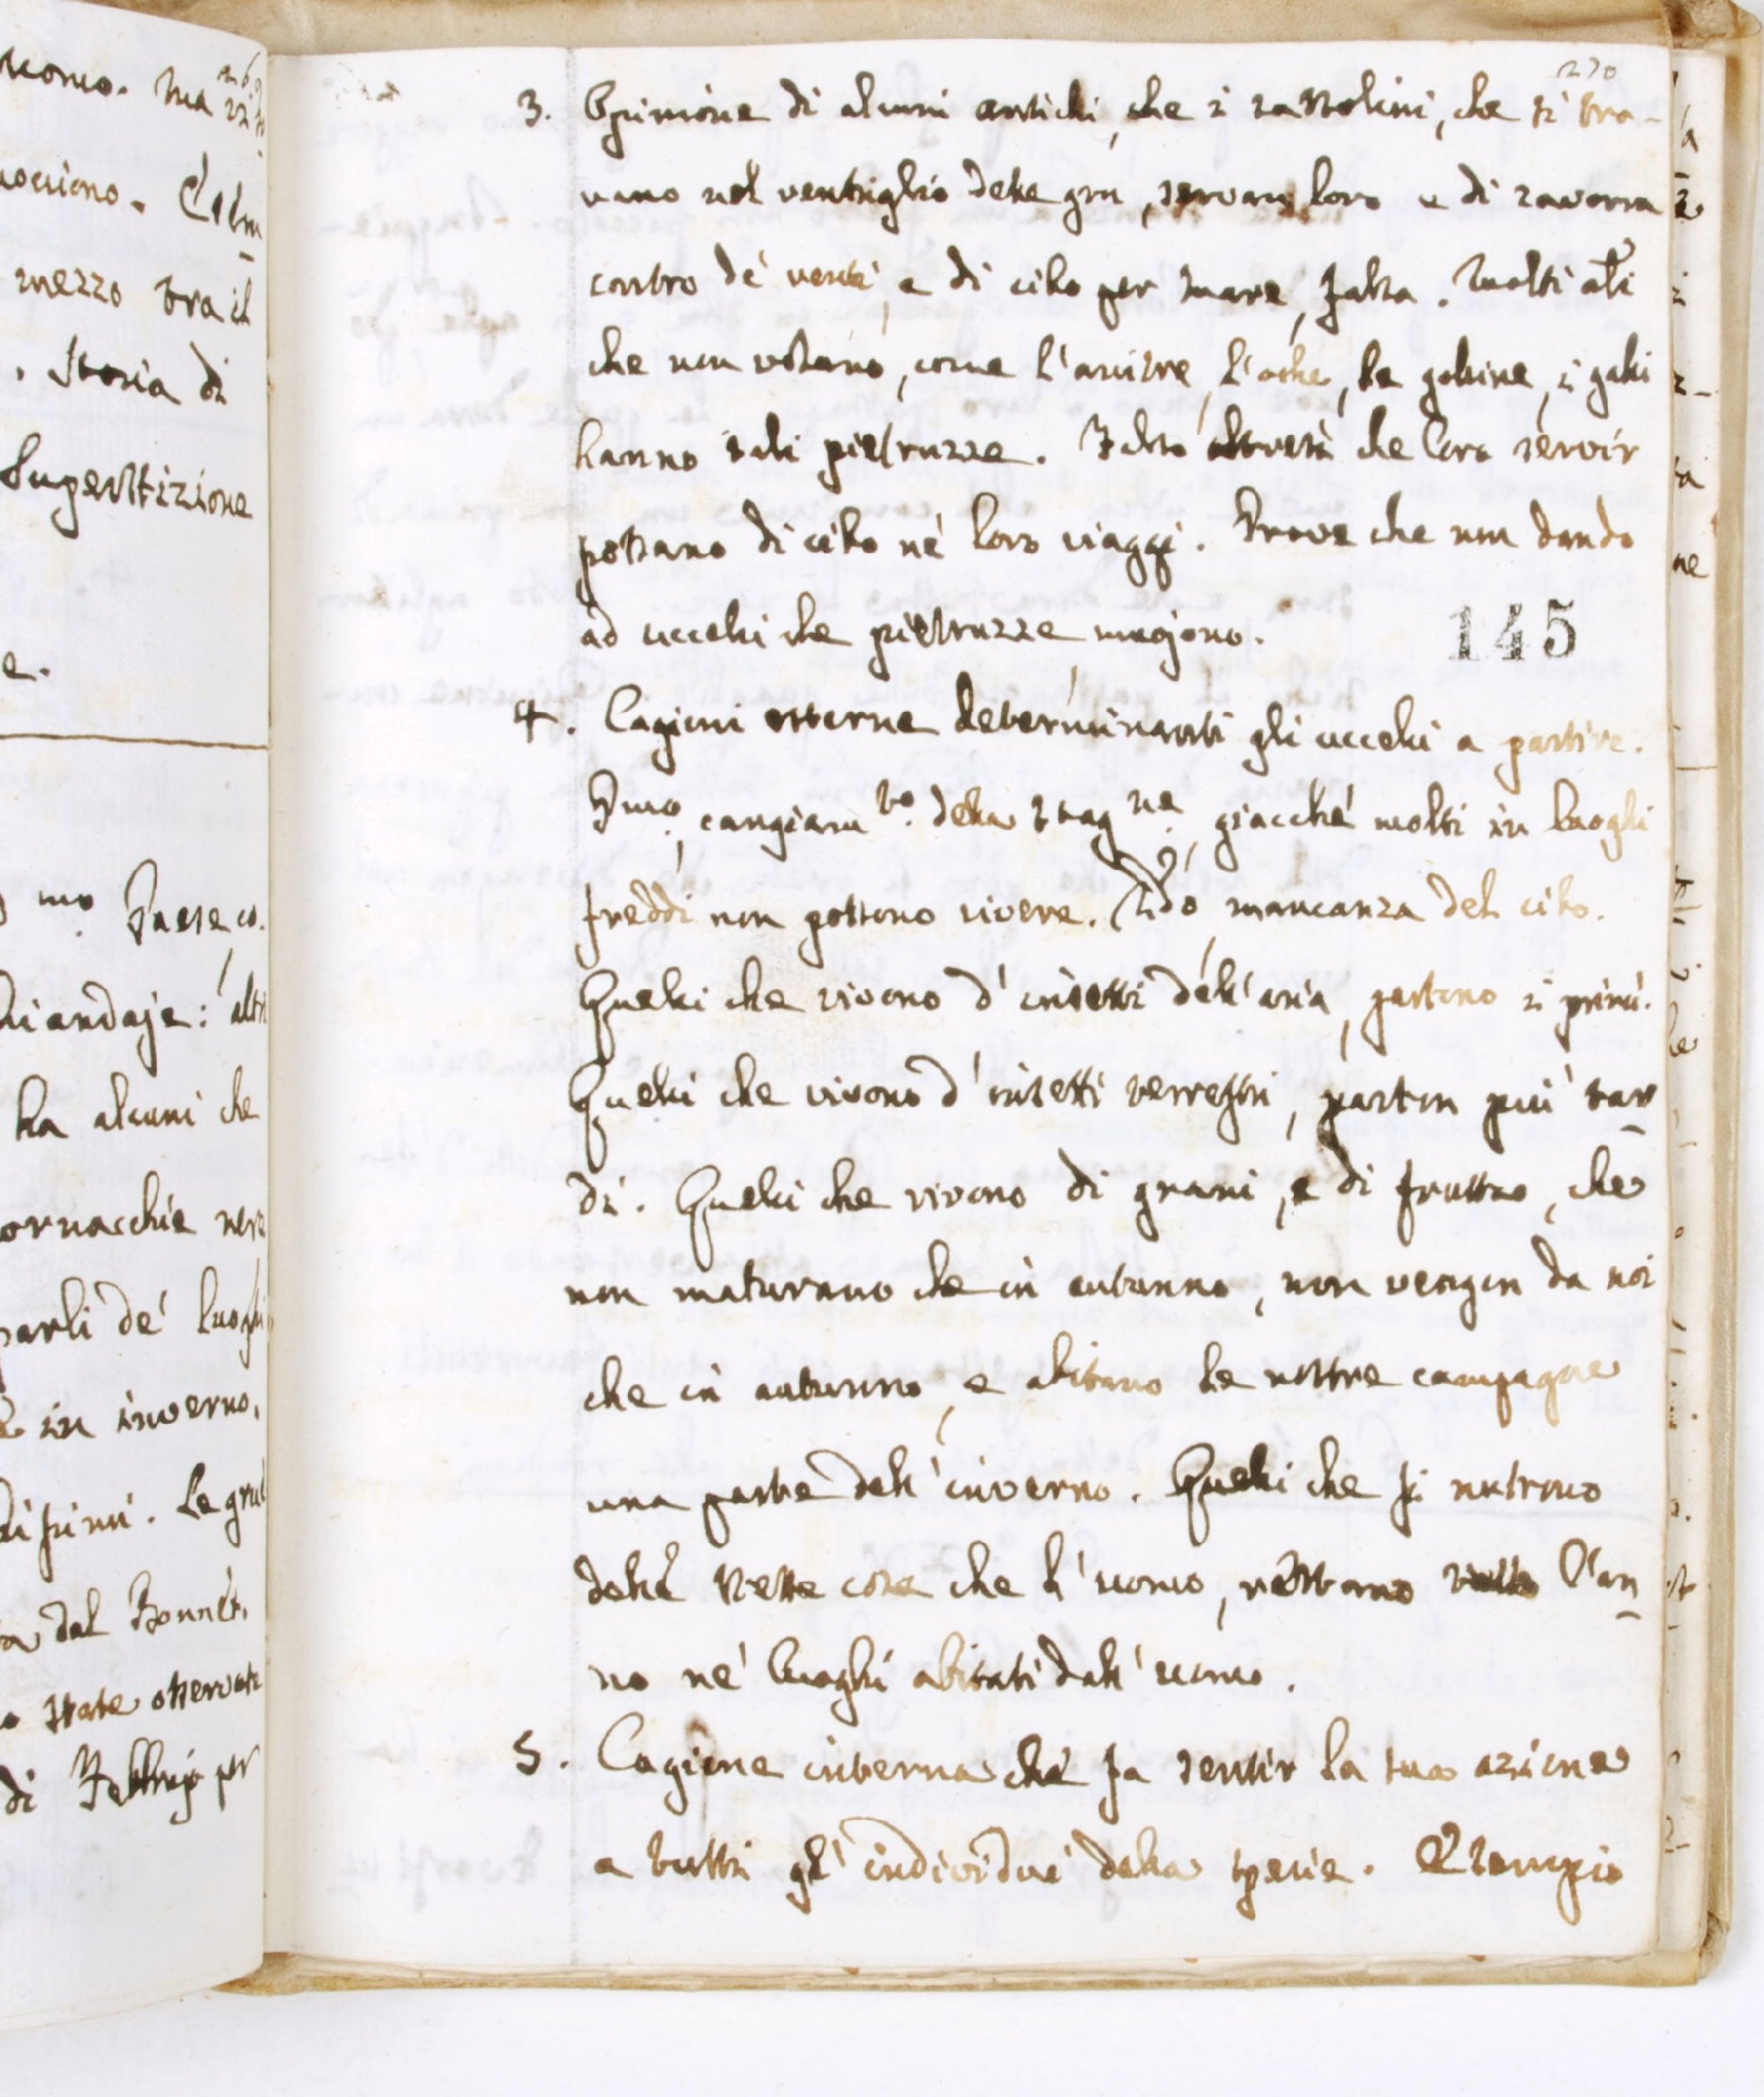 uomo. Ma
nocciono.
mezzo tra il
. Storia di
Superstizione
e.
mo Paese co.
ghiandaje: altri
ha alcuni che
ornacchie nere
parli de' luoghi
in inverno.
Le gru
a dal Bonnet.
state osservate
di per
270
3. Opinione di alcuni antichi, che i sassolini, che si tro-
vano nel ventriglio delle gru, servan loro e di zavorra
contro de' venti, e di cibo per mare, falsa. Molti altri
che non volano, come l'anitre, l'oche, le galline, i galli
hanno tali pietruzze. Falso altresì che loro servir
possano di cibo ne' loro viaggi. Prove che non dando
ad uccelli che pietruzze muojono.
145
4. Cagioni esterne determinanti gli uccelli a partire.
Pmo, cangiamto. della stagne. giacché molti in luoghi
freddi non possono vivere. 2do mancanza del cibo.
Quelli che vivono d'insetti dell'aria, partono i primi.
Quelli che vivono d'insetti terrestri, parton più tar
di. Quelli che vivono di grani, e di frutta, che
non maturano che in autunno, non vengon da noi
che in autunno, e abitano le nostre campagne
una parte dell'inverno. Quelli che si nutrono
delle stesse cose che l'uomo, restano tutto l'an
no ne' luoghi abitati dall'uomo.
5. Cagione interna che fa sentir la sua azione
a tutti gl'individui della specie. Esempio